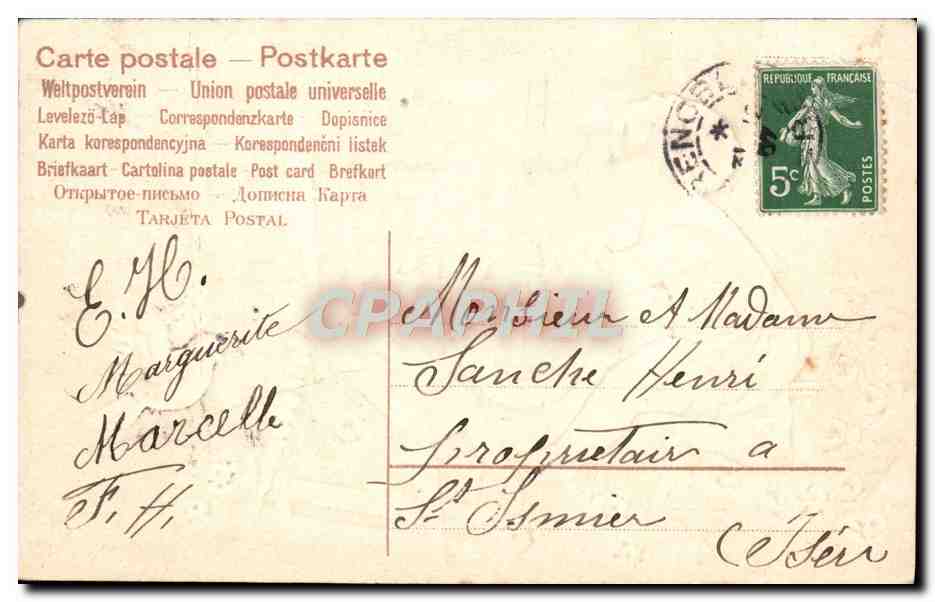 Carte postale — Postkarte
Weltpostverein — Union postale universelle
Levelező-Lap - Correspondenzkarte - Dopisnice
Karta korespondencyjna - Korespondenční listek
Briefkaart - Cartolina postale - Post card - Brefkort
Открытое-письмо - Дописна Карта
TARJÉTA POSTAL
RENOBL
RÉPUBLIQUE FRANÇAISE
5c
POSTES
E. H.
Marguerite
Marcelle
F. H.
CPAPHIL
Monsieur et Madame
Sanche Henri
propriétair a
St Ismier
Isère